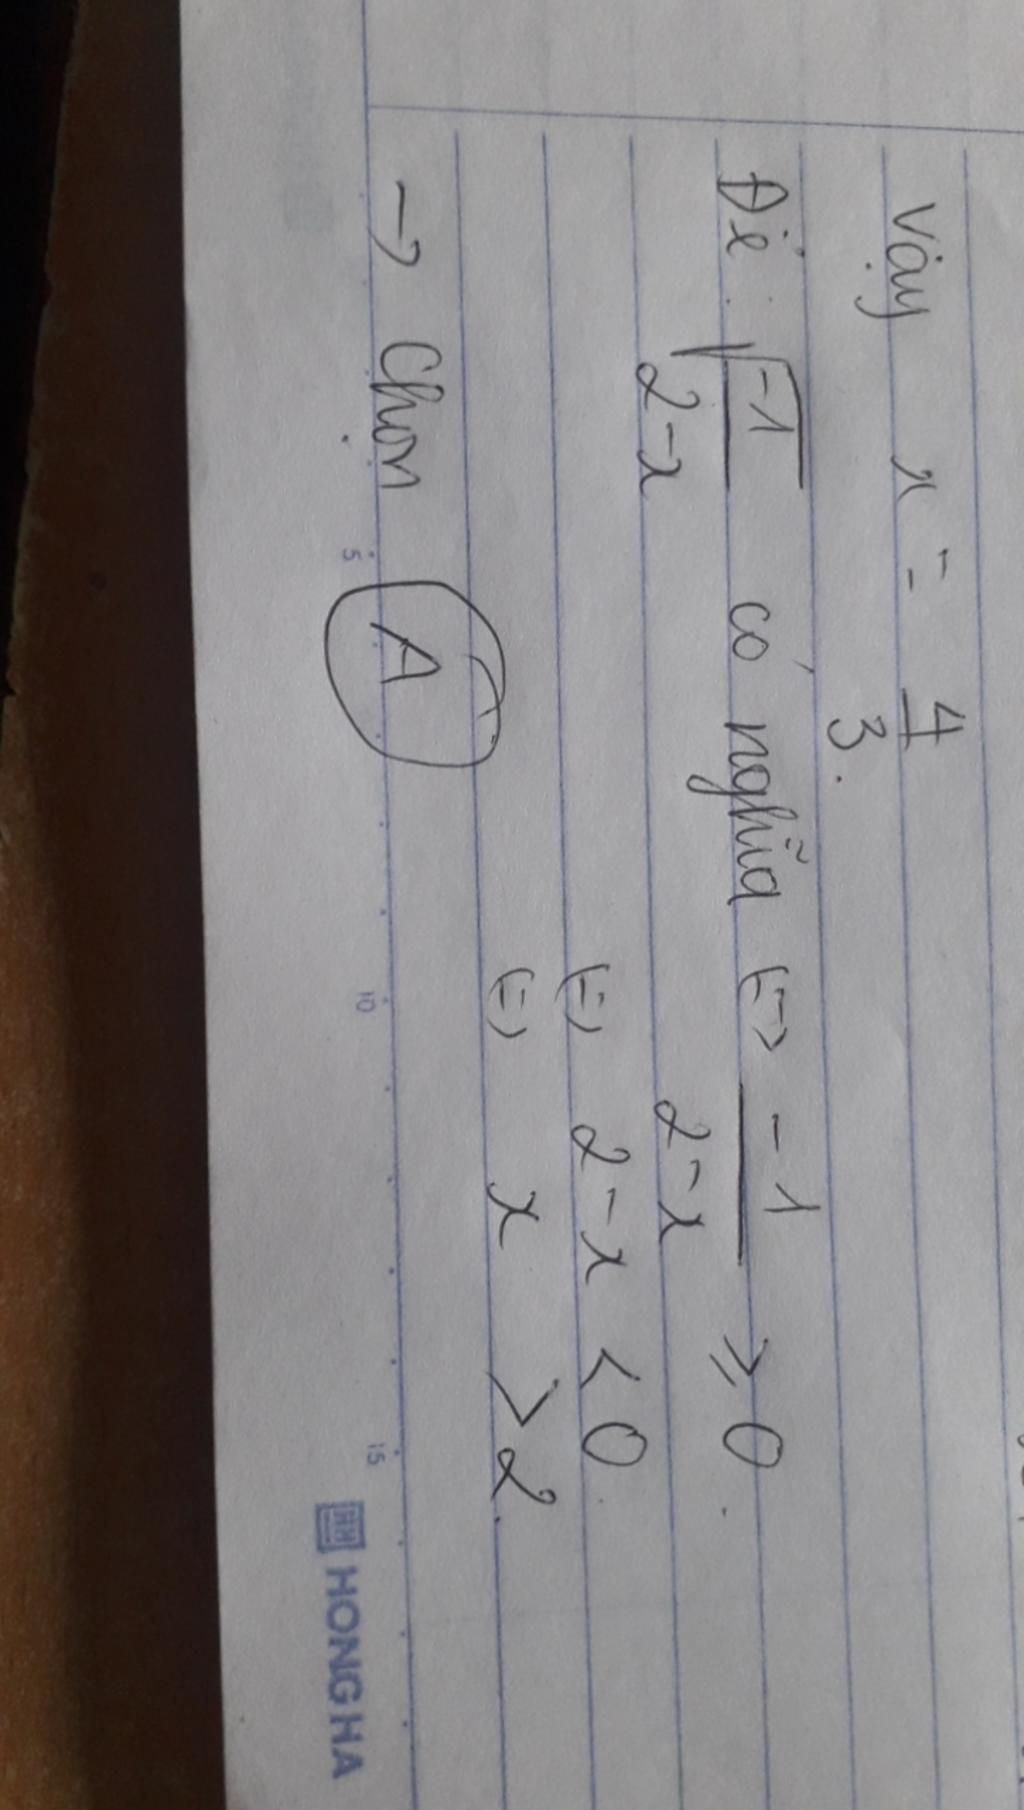 Vậy x = 4/3.
Để √(-1/(2-x)) có nghĩa (=) -1/(2-x) ≥ 0.
(=) 2-x < 0.
(=) x > 2.
→ Chọn A
5 10 15 HH HONG HA